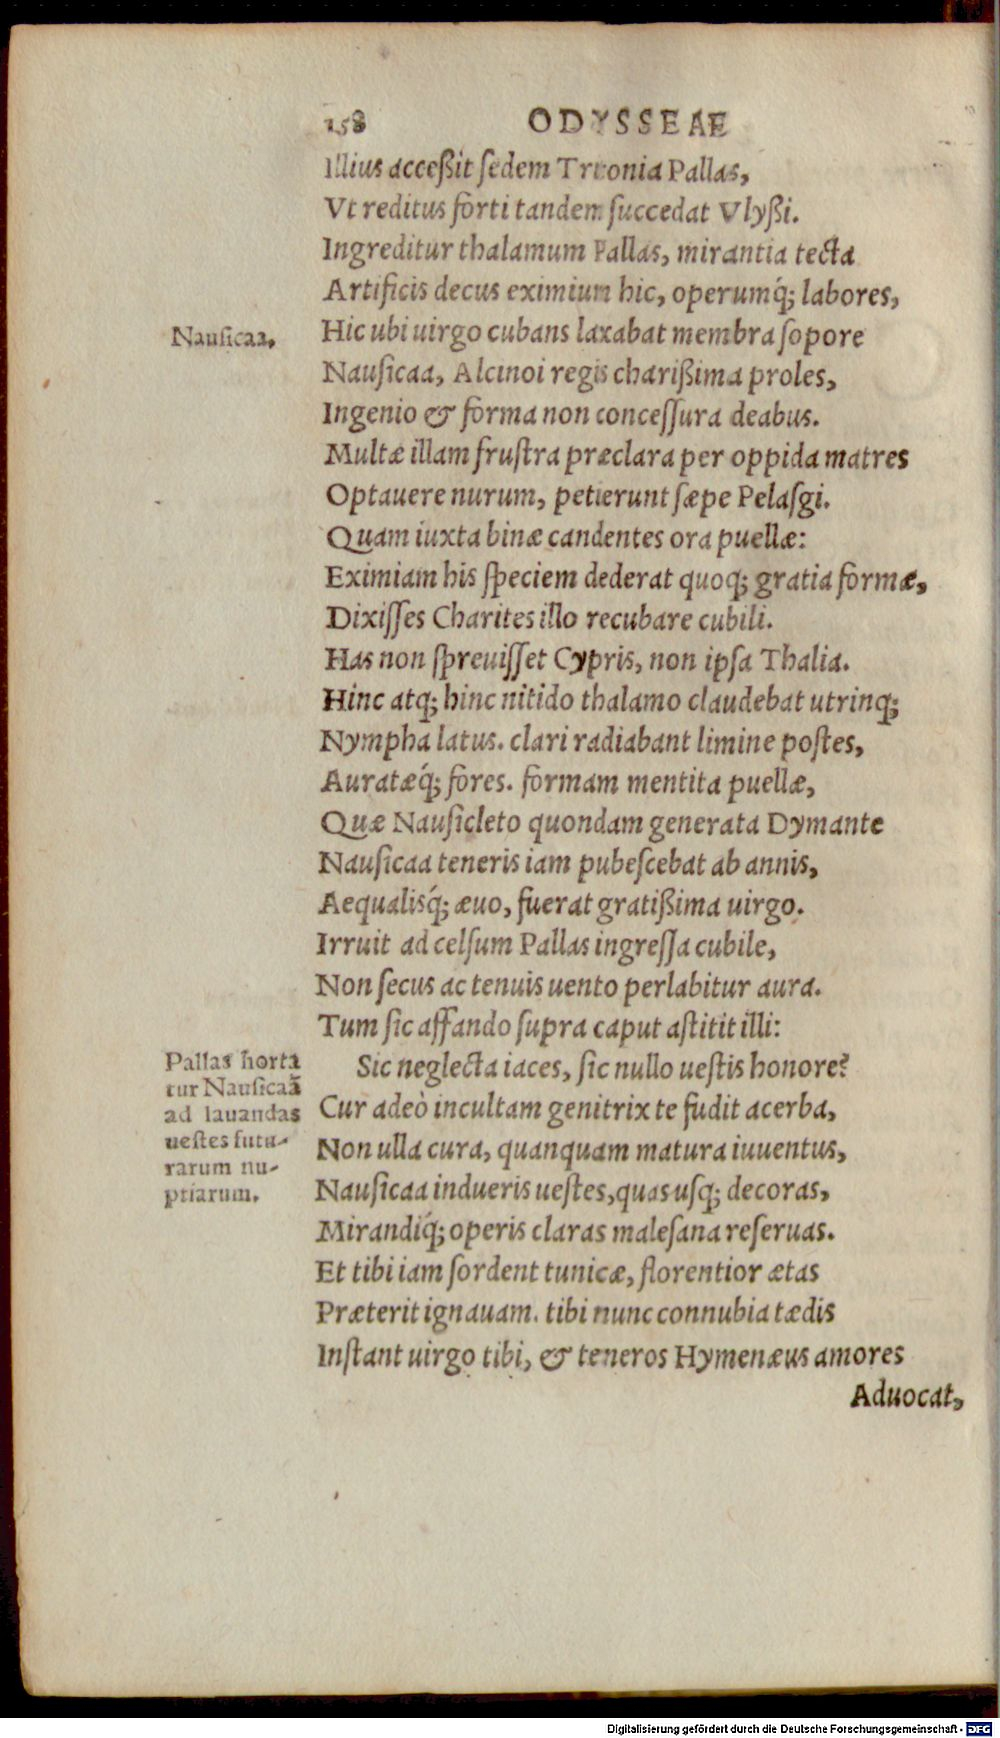 158 ODYSSEAE
Illius acceßit ſedem Trıtonia Pallas,
Vt reditus forti tandem ſuccedat Vlyßi.
Ingreditur thalamum Pallas, mirantia tecta
Artificis decus eximium hic, operumq́; labores,
Nauſicaa.
Hic ubi uirgo cubans laxabat membra ſopore
Nauſicaa, Alcinoi regis charißima proles,
Ingenio & forma non conceſſura deabus.
Multæ illam fruſtra præclara per oppida matres
Optauere nurum, petierunt ſæpe Pelaſgi.
Quam iuxta binæ candentes ora puellæ:
Eximiam his ſpeciem dederat quoq; gratia formæ,
Dixiſſes Charites illo recubare cubili.
Has non ſpreuiſſet Cypris, non ipſa Thalia.
Hinc atq; hinc nitido thalamo claudebat utrinq;
Nympha latus. clari radiabant limine poſtes,
Auratæq́; fores. formam mentita puellæ,
Quæ Nauſicleto quondam generata Dymante
Nauſicaa teneris iam pubeſcebat ab annis,
Aequalisq́; æuo, fuerat gratißima uirgo.
Irruit ad celſum Pallas ingreſſa cubile,
Non ſecus ac tenuis uento perlabitur aura.
Tum ſic affando ſupra caput aſtitit illi:
Pallas horta
tur Nauſicaā
ad lauandas
ueſtes futu-
rarum nu-
ptiarum.
Sic neglecta iaces, ſic nullo ueſtis honore?
Cur adeò incultam genitrix te fudit acerba,
Non ulla cura, quanquam matura iuuentus,
Nauſicaa indueris ueſtes, quas uſq; decoras,
Mirandiq́; operis claras maleſana reſeruas.
Et tibi iam ſordent tunicæ, florentior ætas
Præterit ignauam. tibi nunc connubia tædis
Inſtant uirgo tibi, & teneros Hymenæus amores
Aduocat,
Digitalisierung gefördert durch die Deutsche Forschungsgemeinschaft - DFG